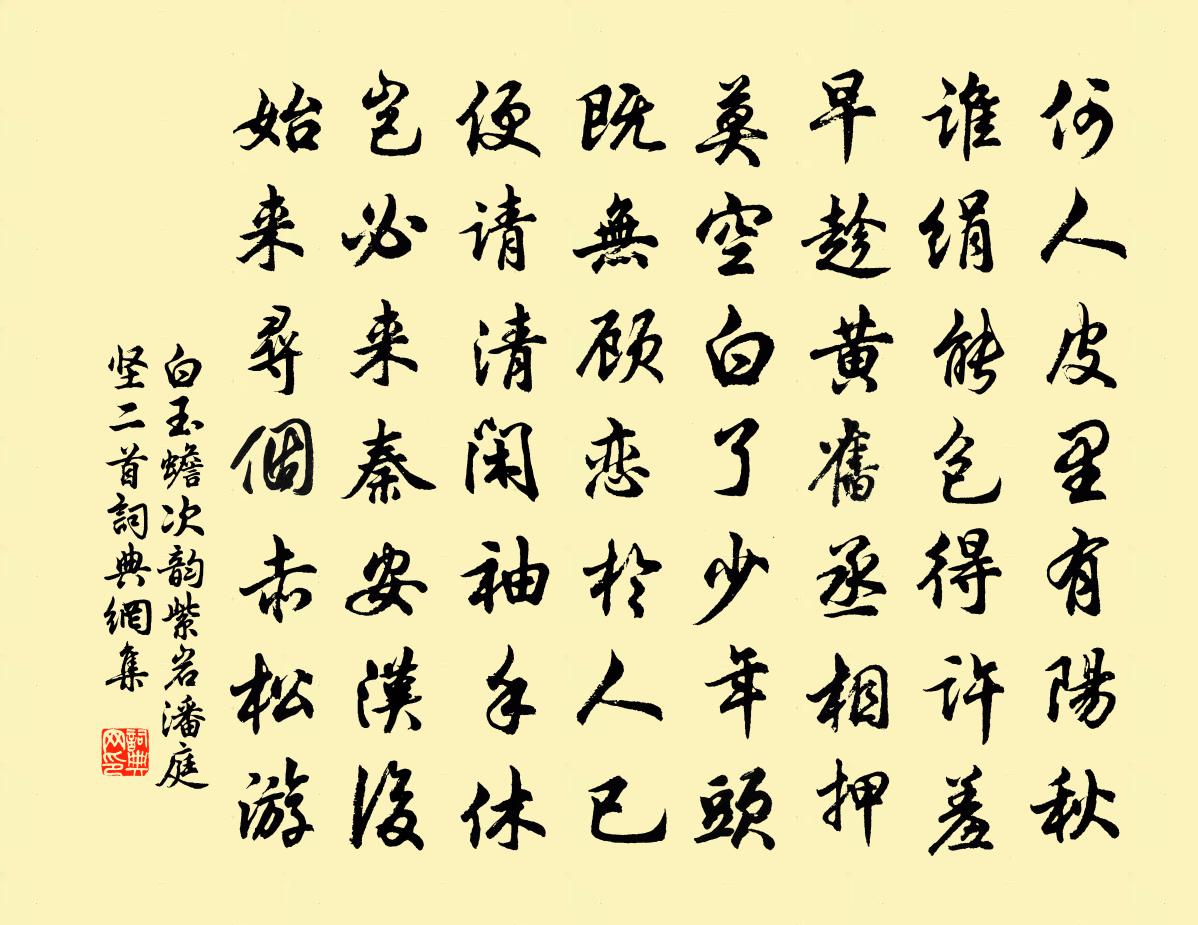 何人皮里有陽秋
谁绢能包得许羞
早趁黄舊丞相押
莫空白了少年頭
既無顾恋於人已
便请清闲袖手休
岂必来秦安漢後
始来尋個赤松游
白玉蟾次韵紫岩潘庭
坚二首詞典網集
詞典
网印